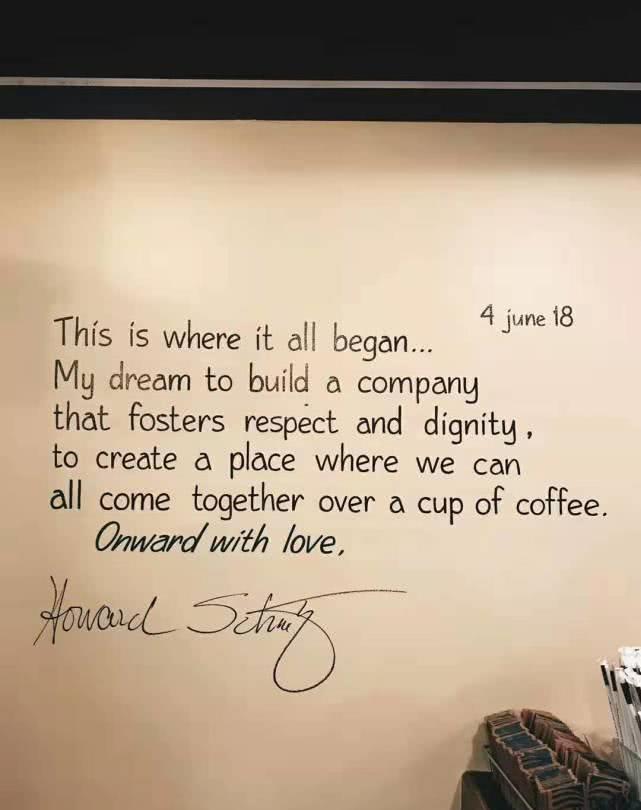 4 june 18
This is where it all began...
My dream to build a company
that fosters respect and dignity,
to create a place where we can
all come together over a cup of coffee.
Onward with love,
Howard Schultz